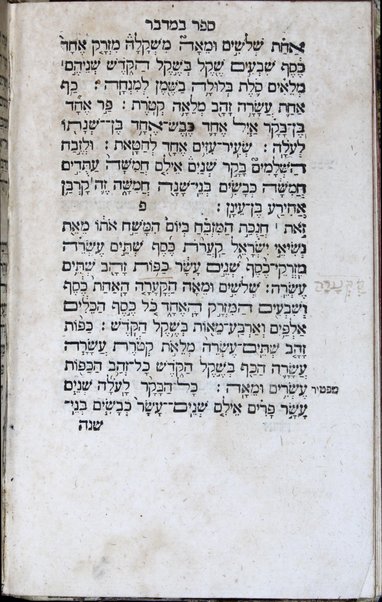 ספר במדבר
אַחַת שְׁלֹשִׁים וּמֵאָה מִשְׁקָלָהּ מִזְרָק אֶחָד
כֶּסֶף שִׁבְעִים שֶׁקֶל בְּשֶׁקֶל הַקֹּדֶשׁ שְׁנֵיהֶם
מְלֵאִים סֹלֶת בְּלוּלָה בַשֶּׁמֶן לְמִנְחָה׃ כַּף
אַחַת עֲשָׂרָה זָהָב מְלֵאָה קְטֹרֶת׃ פַּר אֶחָד
בֶּן־בָּקָר אַיִל אֶחָד כֶּבֶשׂ־אֶחָד בֶּן־שְׁנָתוֹ
לְעֹלָה׃ שְׂעִיר־עִזִּים אֶחָד לְחַטָּאת׃ וּלְזֶבַח
הַשְּׁלָמִים בָּקָר שְׁנַיִם אֵילִם חֲמִשָּׁה עַתֻּדִים
חֲמִשָּׁה כְּבָשִׂים בְּנֵי־שָׁנָה חֲמִשָּׁה זֶה קָרְבַּן
אֲחִירַע בֶּן־עֵינָן׃ פ
זֹאת ׀ חֲנֻכַּת הַמִּזְבֵּחַ בְּיוֹם הִמָּשַׁח אֹתוֹ מֵאֵת
נְשִׂיאֵי יִשְׂרָאֵל קַעֲרֹת כֶּסֶף שְׁתֵּים עֶשְׂרֵה
מִזְרְקֵי־כֶסֶף שְׁנֵים עָשָׂר כַּפּוֹת זָהָב שְׁתֵּים
עֶשְׂרֵה׃ שְׁלֹשִׁים וּמֵאָה הַקְּעָרָה הָאַחַת כֶּסֶף
וְשִׁבְעִים הַמִּזְרָק הָאֶחָד כֹּל כֶּסֶף הַכֵּלִים
אַלְפַּיִם וְאַרְבַּע־מֵאוֹת בְּשֶׁקֶל הַקֹּדֶשׁ׃ כַּפּוֹת
זָהָב שְׁתֵּים־עֶשְׂרֵה מְלֵאֹת קְטֹרֶת עֲשָׂרָה
עֲשָׂרָה הַכַּף בְּשֶׁקֶל הַקֹּדֶשׁ כָּל־זְהַב הַכַּפּוֹת
עֶשְׂרִים וּמֵאָה׃ כָּל־הַבָּקָר לָעֹלָה שְׁנֵים מפטיר
עָשָׂר פָּרִים אֵילִם שְׁנֵים־עָשָׂר כְּבָשִׂים בְּנֵי־
שנה